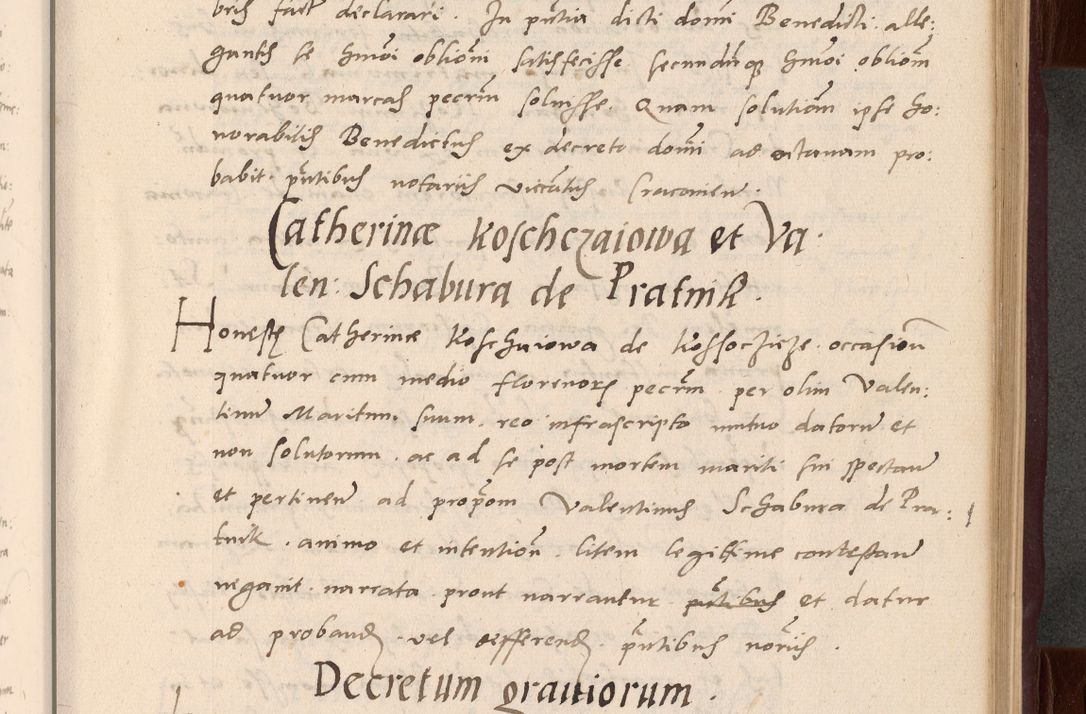 bris fact declarari. In pntia dicti domi Benedicti alle:
gantis se hmoi obliom satisfecisse secundúqz hmoi obliom
quatuor marcas pecrm soluisse. Quam solutiom ipse ho:
norabilis Benedictus ex decreto domi ad octauam pro:
babit. pntibus notariis Cracouien.
Catherinæ Koschczaiowa et Va
len: Schabura de Pratnik.
Honestę Catherinæ Koschaiowa de occasion
quatuor cum medio florenorz pecrm per olim Valen:
tinu Maritum suum reo infrascripto mutuo datoru et
non solutorum ac ad se post mortem mariti sui spectan
et pertinen ad propom Valentinus Schabura de Prat:
tnik. animo et intention litem legittime contestan
negauit narrata prout narrantur pntibus et datur
ad proband vel defferend pntibus noriis.
Decretum grauiorum.